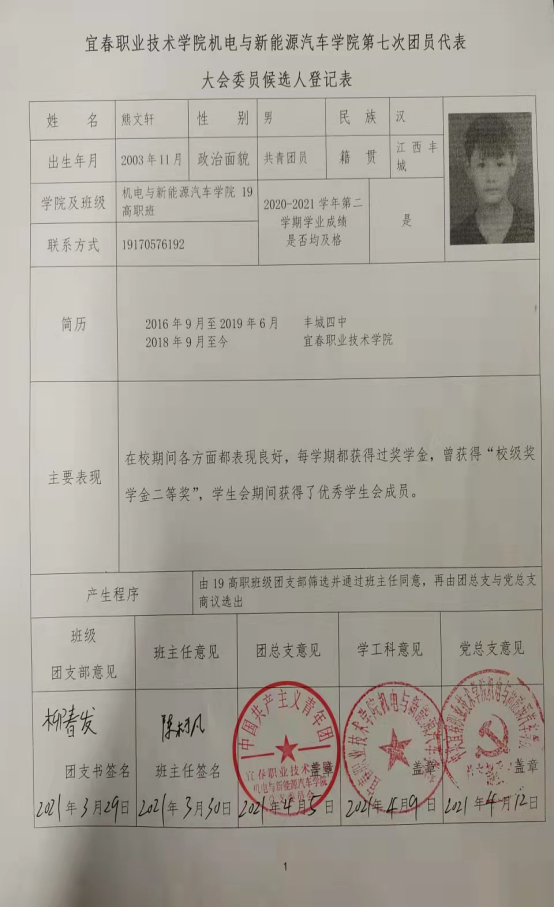 宜春职业技术学院机电与新能源汽车学院第七次团员代表
大会委员候选人登记表
姓 名 熊文轩 性 别 男 民 族 汉
出生年月 2003年11月 政治面貌 共青团员 籍 贯 江西丰
城
学院及班级 机电与新能源汽车学院 19
高职班
2020-2021学年第二
学期学业成绩
是否均及格
是
联系方式 19170576192
简历
2016年9月至2019年6月 丰城四中
2018年9月至今 宜春职业技术学院
主要表现
在校期间各方面都表现良好，每学期都获得过奖学金，曾获得“校级奖
学金二等奖”，学生会期间获得了优秀学生会成员。
产生程序
由19高职班级团支部筛选并通过班主任同意，再由团总支与党总支
商议选出
班级
团支部意见
班主任意见 团总支意见 学工科意见 党总支意见
柳春发
中国共产主义青年团
宜春职业技术学院
机电与新能源汽车学院
团支书签名 班主任签名 盖章 盖章 盖章
2021年3月29日 2021年3月30日 2021年4月5日 2021年4月9日 2021年4月12日
1